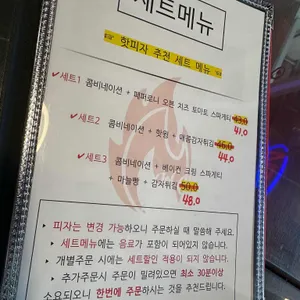 세트메뉴
핫피자 추천 세트 메뉴
✓세트1 콤비네이션 + 페퍼로니 오븐 치즈 토마토 스파게티 43.0
41.0
✓세트2 콤비네이션 + 핫윙 + 매콤감자튀김 46.0
44.0
✓세트3 콤비네이션 + 베이컨 크림 스파게티
+ 마늘빵 + 감자튀김 50.0
48.0
▸ 피자는 변경 가능하오니 주문하실 때 말씀해 주세요.
▸ 세트메뉴에는 음료가 포함이 되어있지 않습니다.
▸ 개별주문 시에는 세트할인 적용이 되지 않습니다.
▸ 추가주문시 주문이 밀려있으면 최소 30분이상
소요되오니 한번에 주문하시는 것을 추천드립니다.